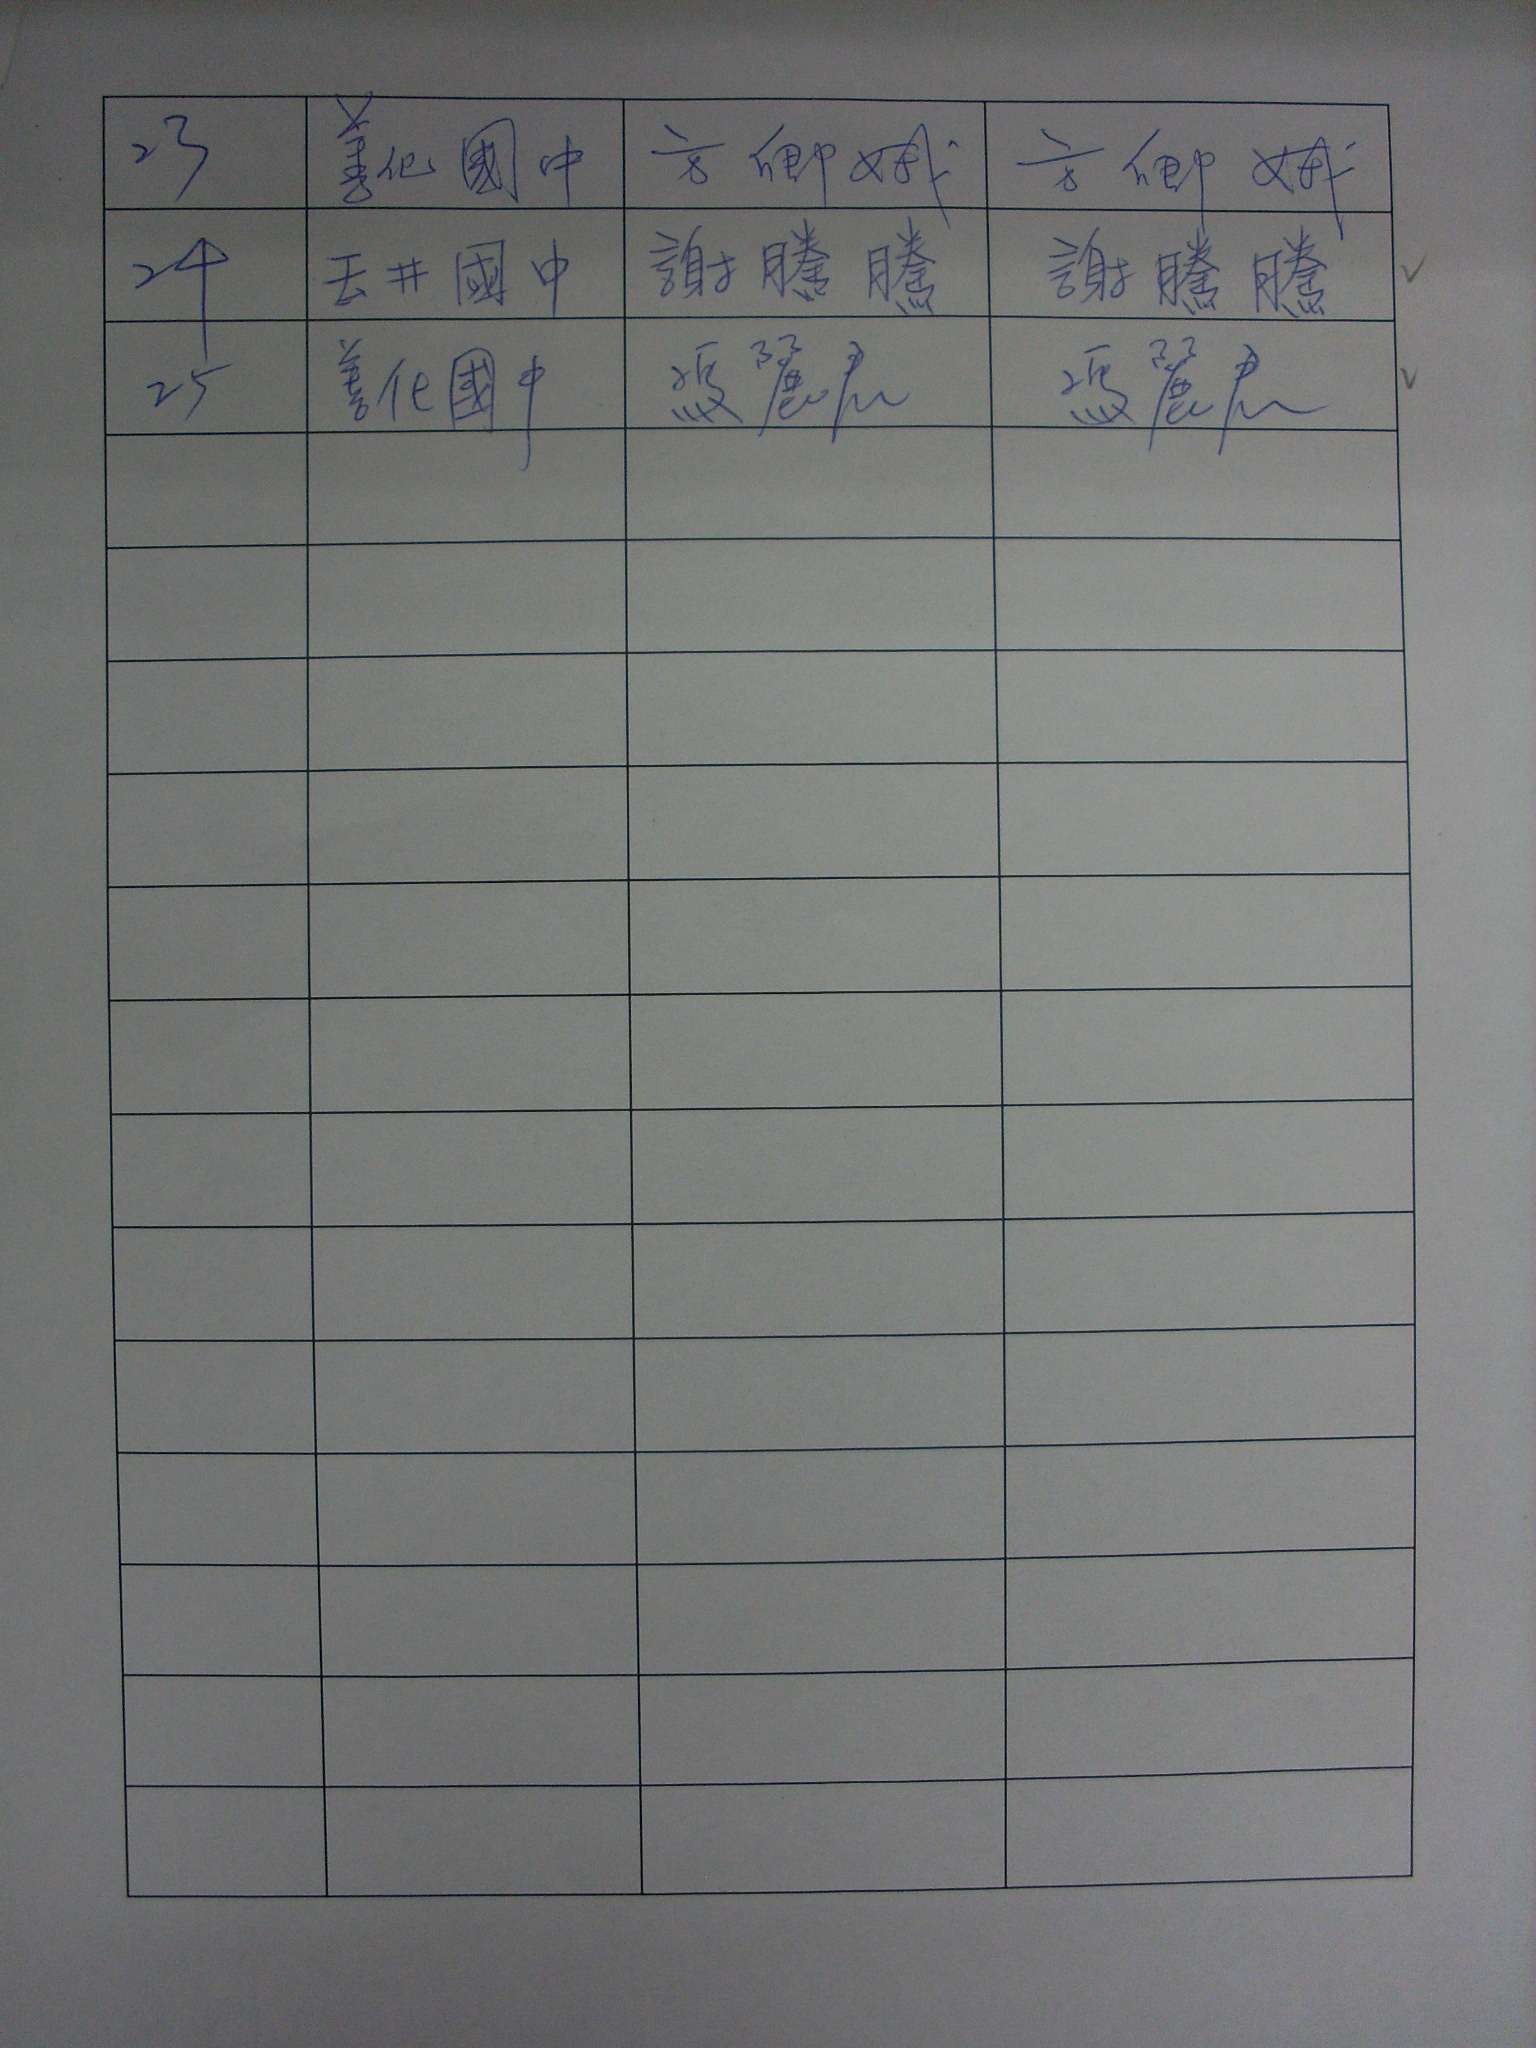 23 善化國中 方卿娥 方卿娥
24 玉井國中 謝騰騰 謝騰騰 ✓
25 善化國中 馮麗君 馮麗君 ✓